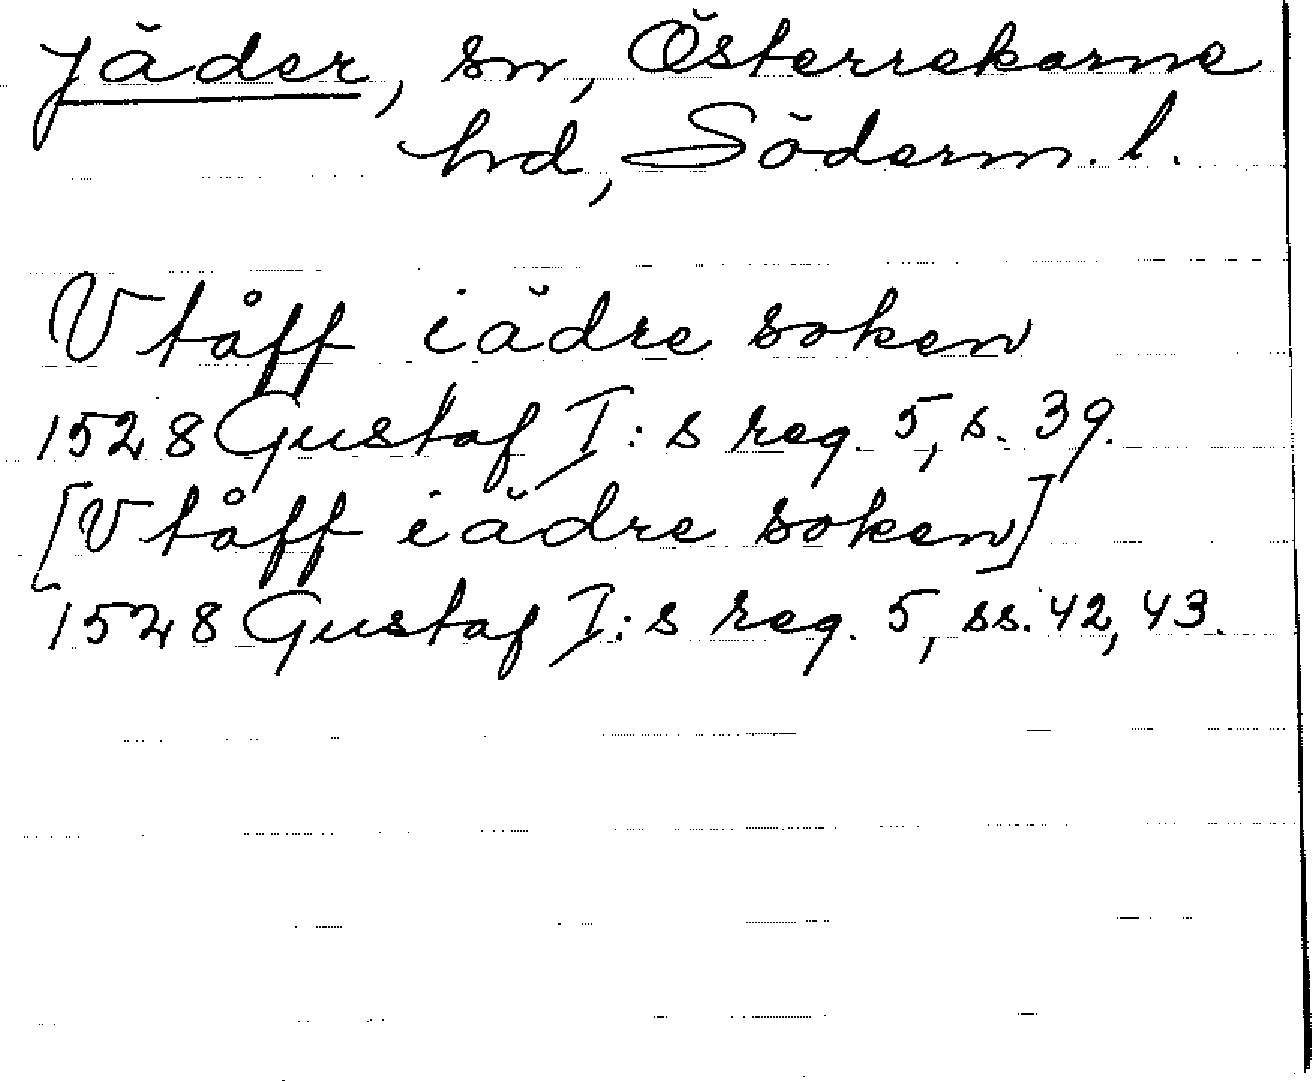 Jäder, sn, Österrekarne
hd, Söderm. l.
V tåff iädre soken
1528 Gustaf I:s reg. 5, s. 39.
[V tåff iädre soken]
1528 Gustaf I:s reg. 5, ss. 42, 43.